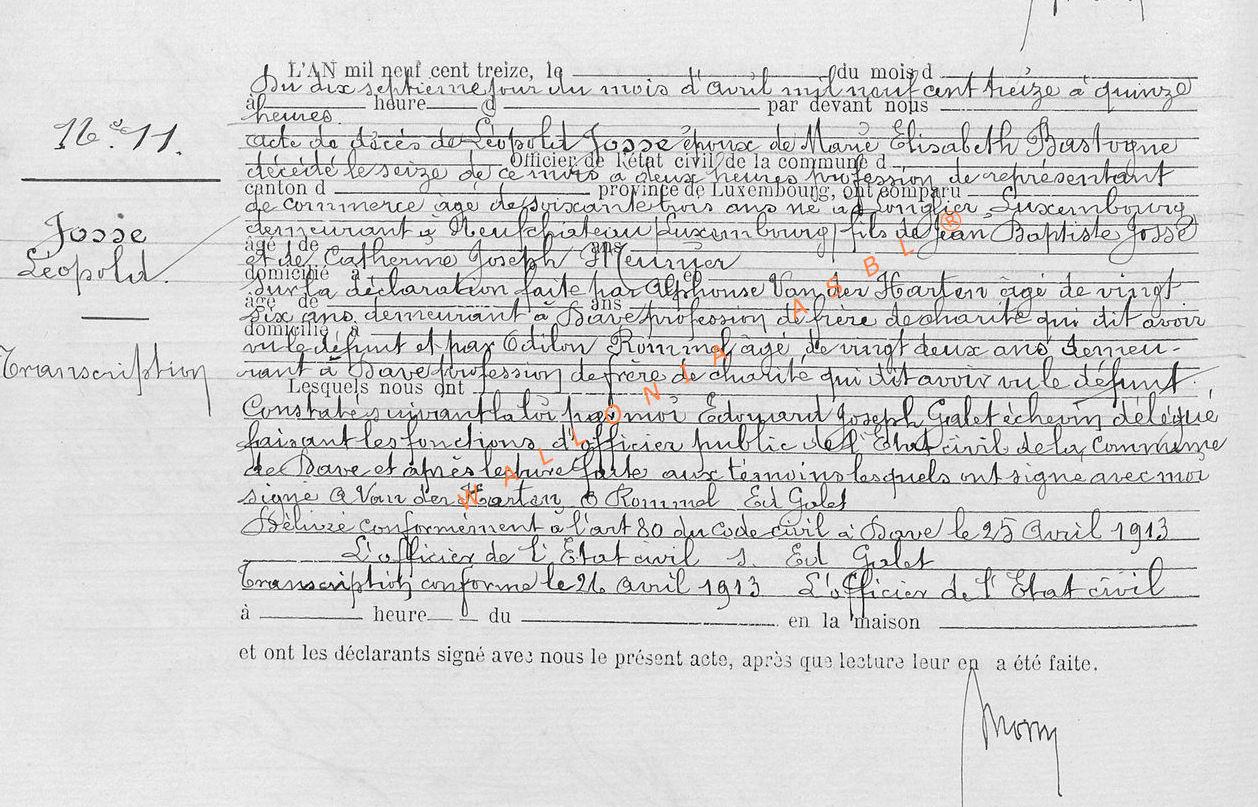 L'AN mil neuf cent treize, le du mois d
Du dix septième jour du mois d'avril mil neuf cent treize à quinze
à heure d par devant nous
heures.
N° 11.
acte de décès de Léopold Josse époux de Marie Elisabeth Bastogne
Officier de l'état civil de la commune d
décédé le seize de ce mois à deux heures profession de représentant
canton d province de Luxembourg, ont comparu
de commerce âgé de soixante trois ans né à Longlier, Luxembourg
Josse
demeurant à Neufchateau (Luxembourg) fils de Jean Baptiste Josse
âgé de ans
et de Catherine Joseph Meunier
Léopold.
domicilié à
sur la déclaration faite par Alphonse Van der Harten âgé de vingt
âgé de ans
six ans, demeurant à Dave profession de frère de charité qui dit avoir
domicilié à
vu le défunt et par Odilon Rommel âgé de vingt deux ans demeu-
Transcription
rant à Dave profession de frère de charité qui dit avoir vu le défunt.
Lesquels nous ont
Constatés suivant la loi par moi Edouard Joseph Galet échevin délégué
faisant les fonctions d'officier public de l'Etat civil de la Commune
de Dave et après lecture faite aux témoins lesquels ont signé avec moi
signé A Van der Harten O Rommel Ed Galet
Délivré conformément à l'art 80 du Code civil à Dave le 25 Avril 1913
L'officier de l'Etat civil s. Ed Galet
Transcription conforme le 26 Avril 1913 L'officier de l'Etat civil
à heure du en la maison
et ont les déclarants signé avec nous le présent acte, après que lecture leur en a été faite.
WALLONIA ASBL ®